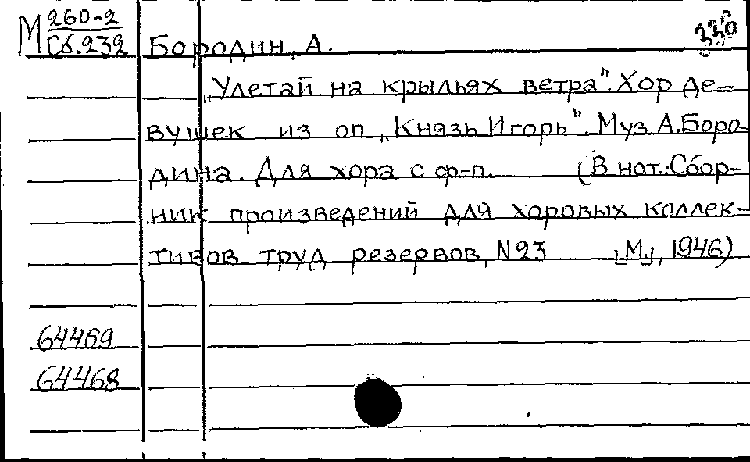 М 260-2
Сб.232
330
Бородин, А.
„Улетай на крыльях ветра". Хор де-
вушек из оп „Князь Игорь". Муз А.Боро-
дина. Для хора с ф-п. (В нот.:Сбор-
ник произведений для хоровых коллек-
тивов труд резервов, №23 [М], 1946)
64469
64468